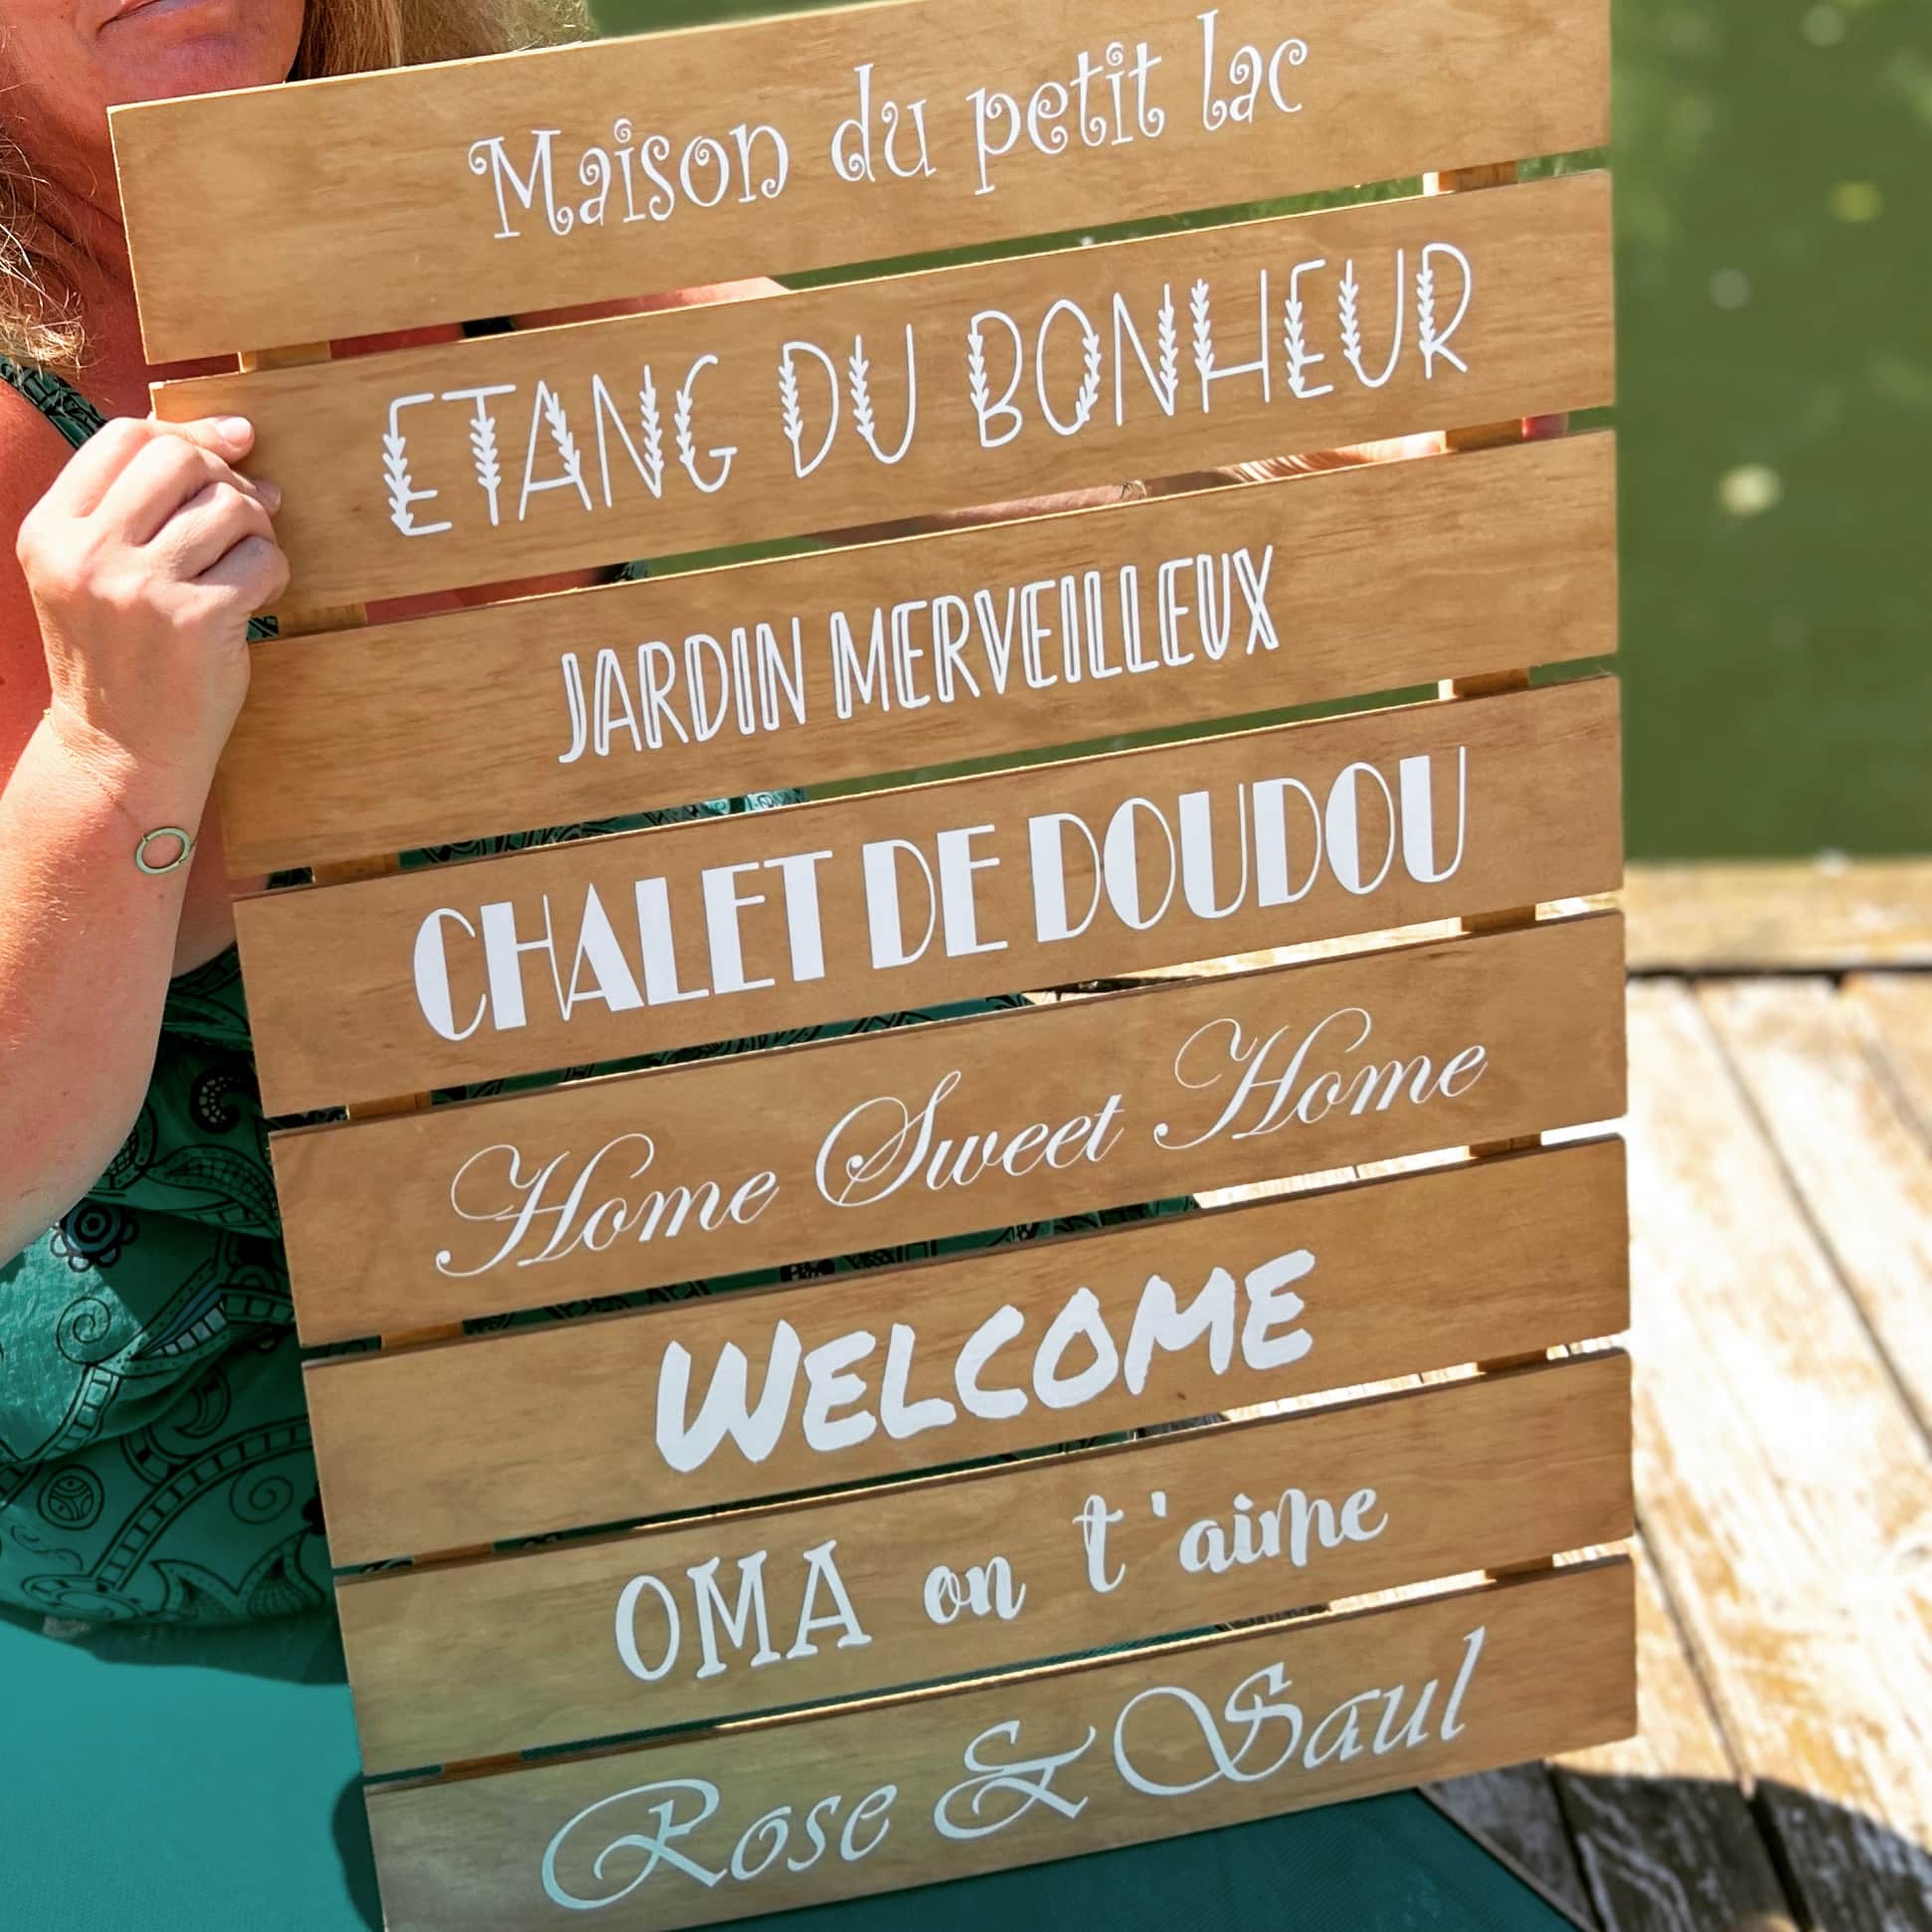 Maison du petit lac
ETANG DU BONHEUR
JARDIN MERVEILLEUX
CHALET DE DOUDOU
Home Sweet Home
WELCOME
OMA on t'aime
Rose & Saul